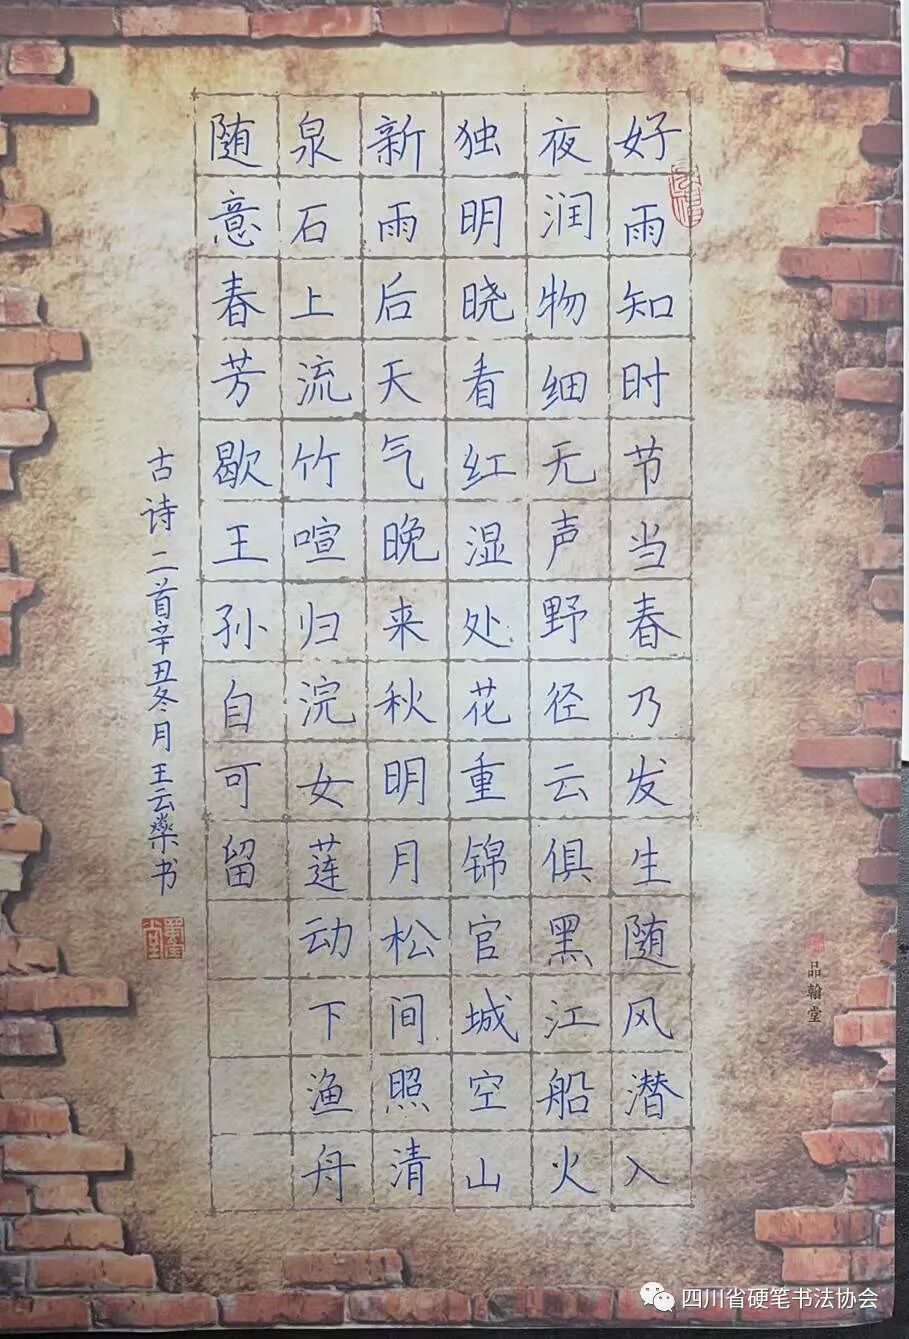 好雨知时节当春乃发生随风潜入
夜润物细无声野径云俱黑江船火
独明晓看红湿处花重锦官城空山
新雨后天气晚来秋明月松间照清
泉石上流竹喧归浣女莲动下渔舟
随意春芳歇王孙自可留
古诗二首辛丑冬月王云燊书
品翰堂
四川省硬笔书法协会